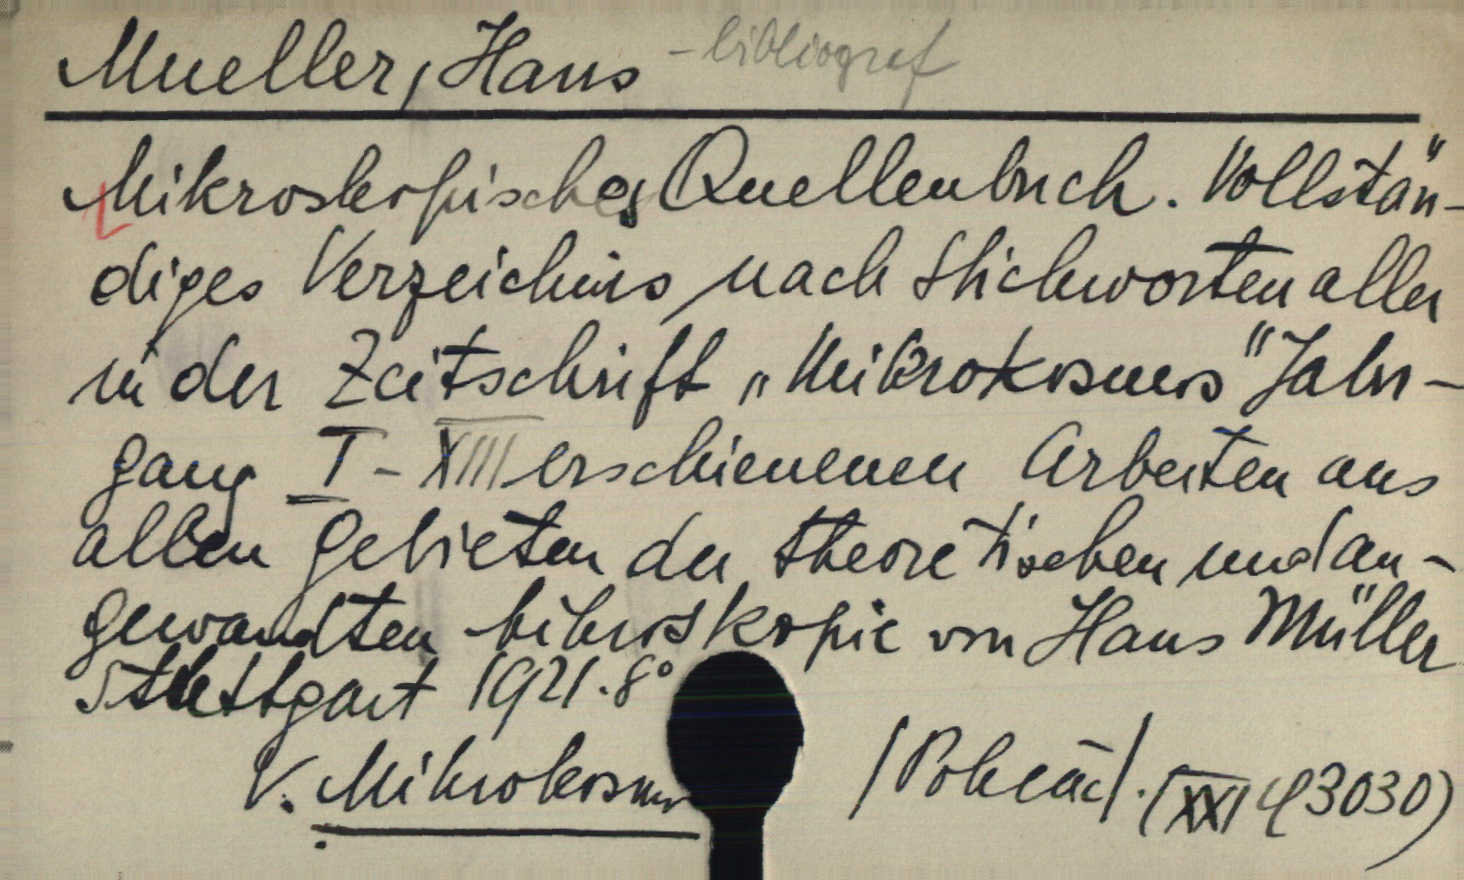 Mueller, Hans - bibliograf
Mikroskopisches Quellenbuch. Vollstän-
diges Verzeichnis nach Stichworten aller
in der Zeitschrift „Mikrokosmos" Jahr-
gang I - XIII erschienenen Arbeiten aus
allen Gebieten der theoretischen und an-
gewandten Mikroskopie von Hans Müller
Stuttgart 1921. 8°
V. Mikrokosmos
(XXI 43030)